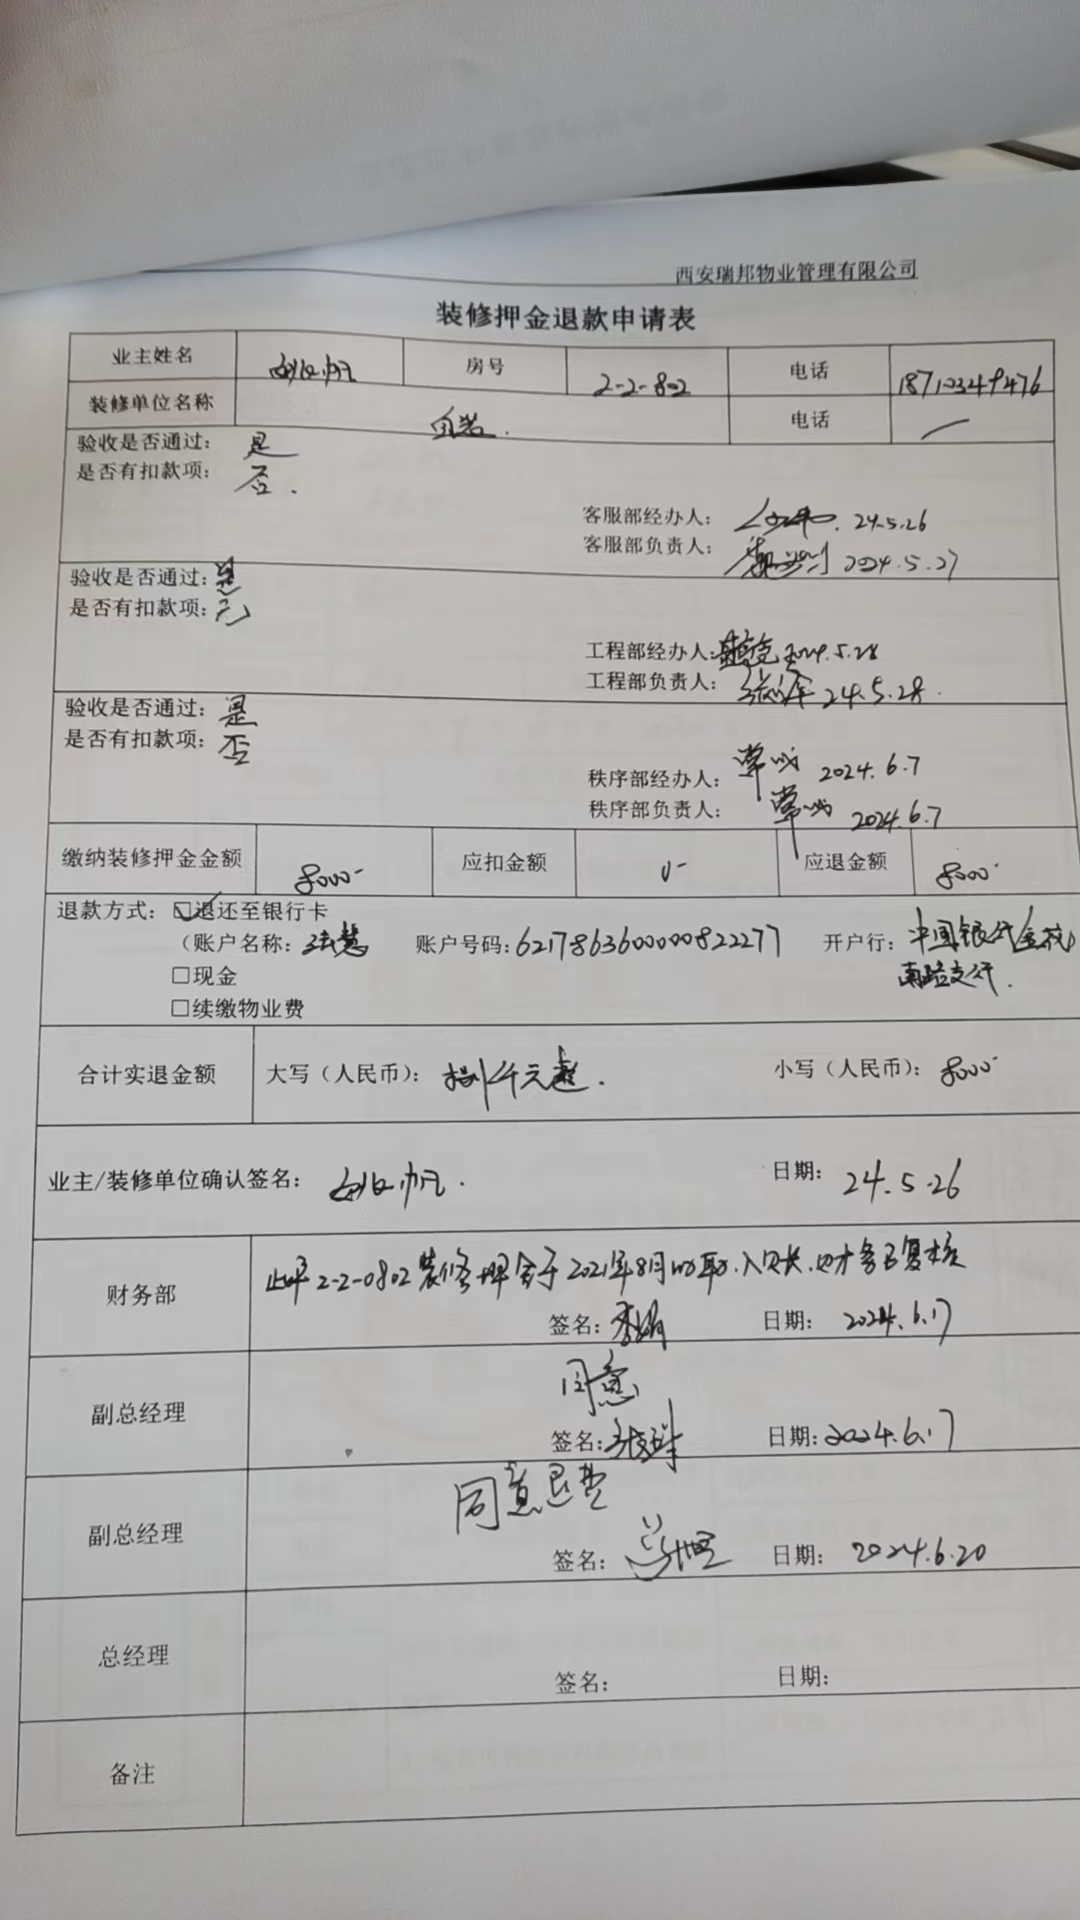 西安瑞邦物业管理有限公司
装修押金退款申请表
业主姓名 房号 2-2-802 电话 18710349476
装修单位名称 自装. 电话 —
验收是否通过: 是
是否有扣款项: 否.
客服部经办人: 24.5.26
客服部负责人: 2024.5.27
验收是否通过: 是
是否有扣款项: 否
工程部经办人: 2024.5.28
工程部负责人: 24.5.28.
验收是否通过: 是
是否有扣款项: 否
秩序部经办人: 2024.6.7
秩序部负责人: 2024.6.7
缴纳装修押金金额 8000- 应扣金额 0- 应退金额 8000-
退款方式: ☑退还至银行卡
(账户名称: 张慧 账户号码: 6217863600000822277 开户行: 中国银行(金花
南路支行.
□现金
□续缴物业费
合计实退金额 大写(人民币): 捌仟元整. 小写(人民币): 8000-
业主/装修单位确认签名: 日期: 24.5.26
财务部 此户2-2-0802装修押金于2021年8月收取.入账,财务已复核
签名: 李娟 日期: 2024.6.17
副总经理 同意
签名: 日期: 2024.6.17
副总经理 同意退费
签名: 日期: 2024.6.20
总经理 签名: 日期:
备注